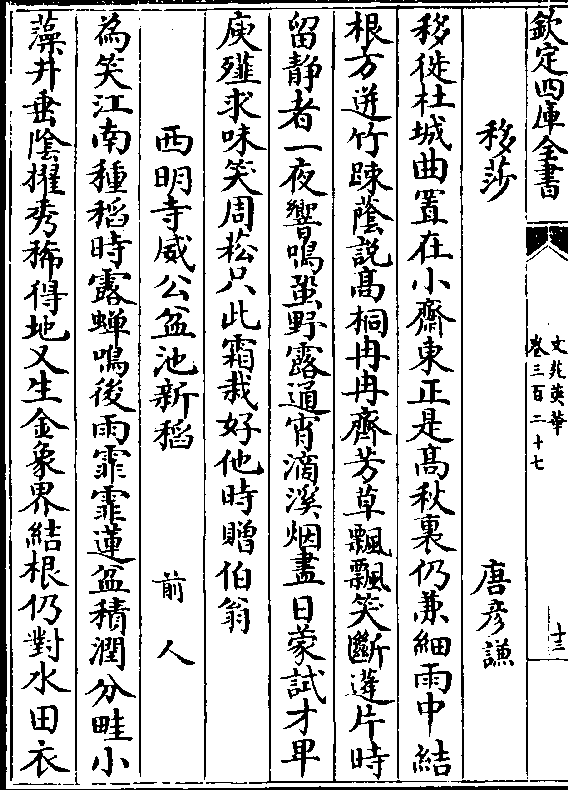 欽定四庫全書
文苑英華
卷三百二十七
十三
移莎 唐彥謙
移徙杜城曲置在小齋東正是髙秋裏仍兼細雨中結
根方迸竹踈蔭説髙桐冉冉齊芳草飄飄笑斷蓬片時
留静者一夜響鳴蛩野露通宵滴溪烟盡日蒙試才卑
庾薤求味笑周菘只此霜栽好他時贈伯翁
西明寺威公盆池新稻 前人
為笑江南種稻時露蟬鳴後雨霏霏蓮盆積潤分畦小
藻井垂陰擢秀稀得地又生金象界結根仍對水田衣